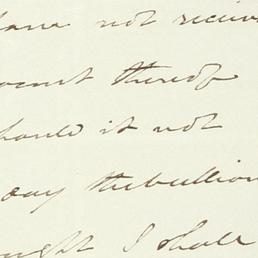 have not receiv
ount thereof
should it not
pay the bullion
ought I shall